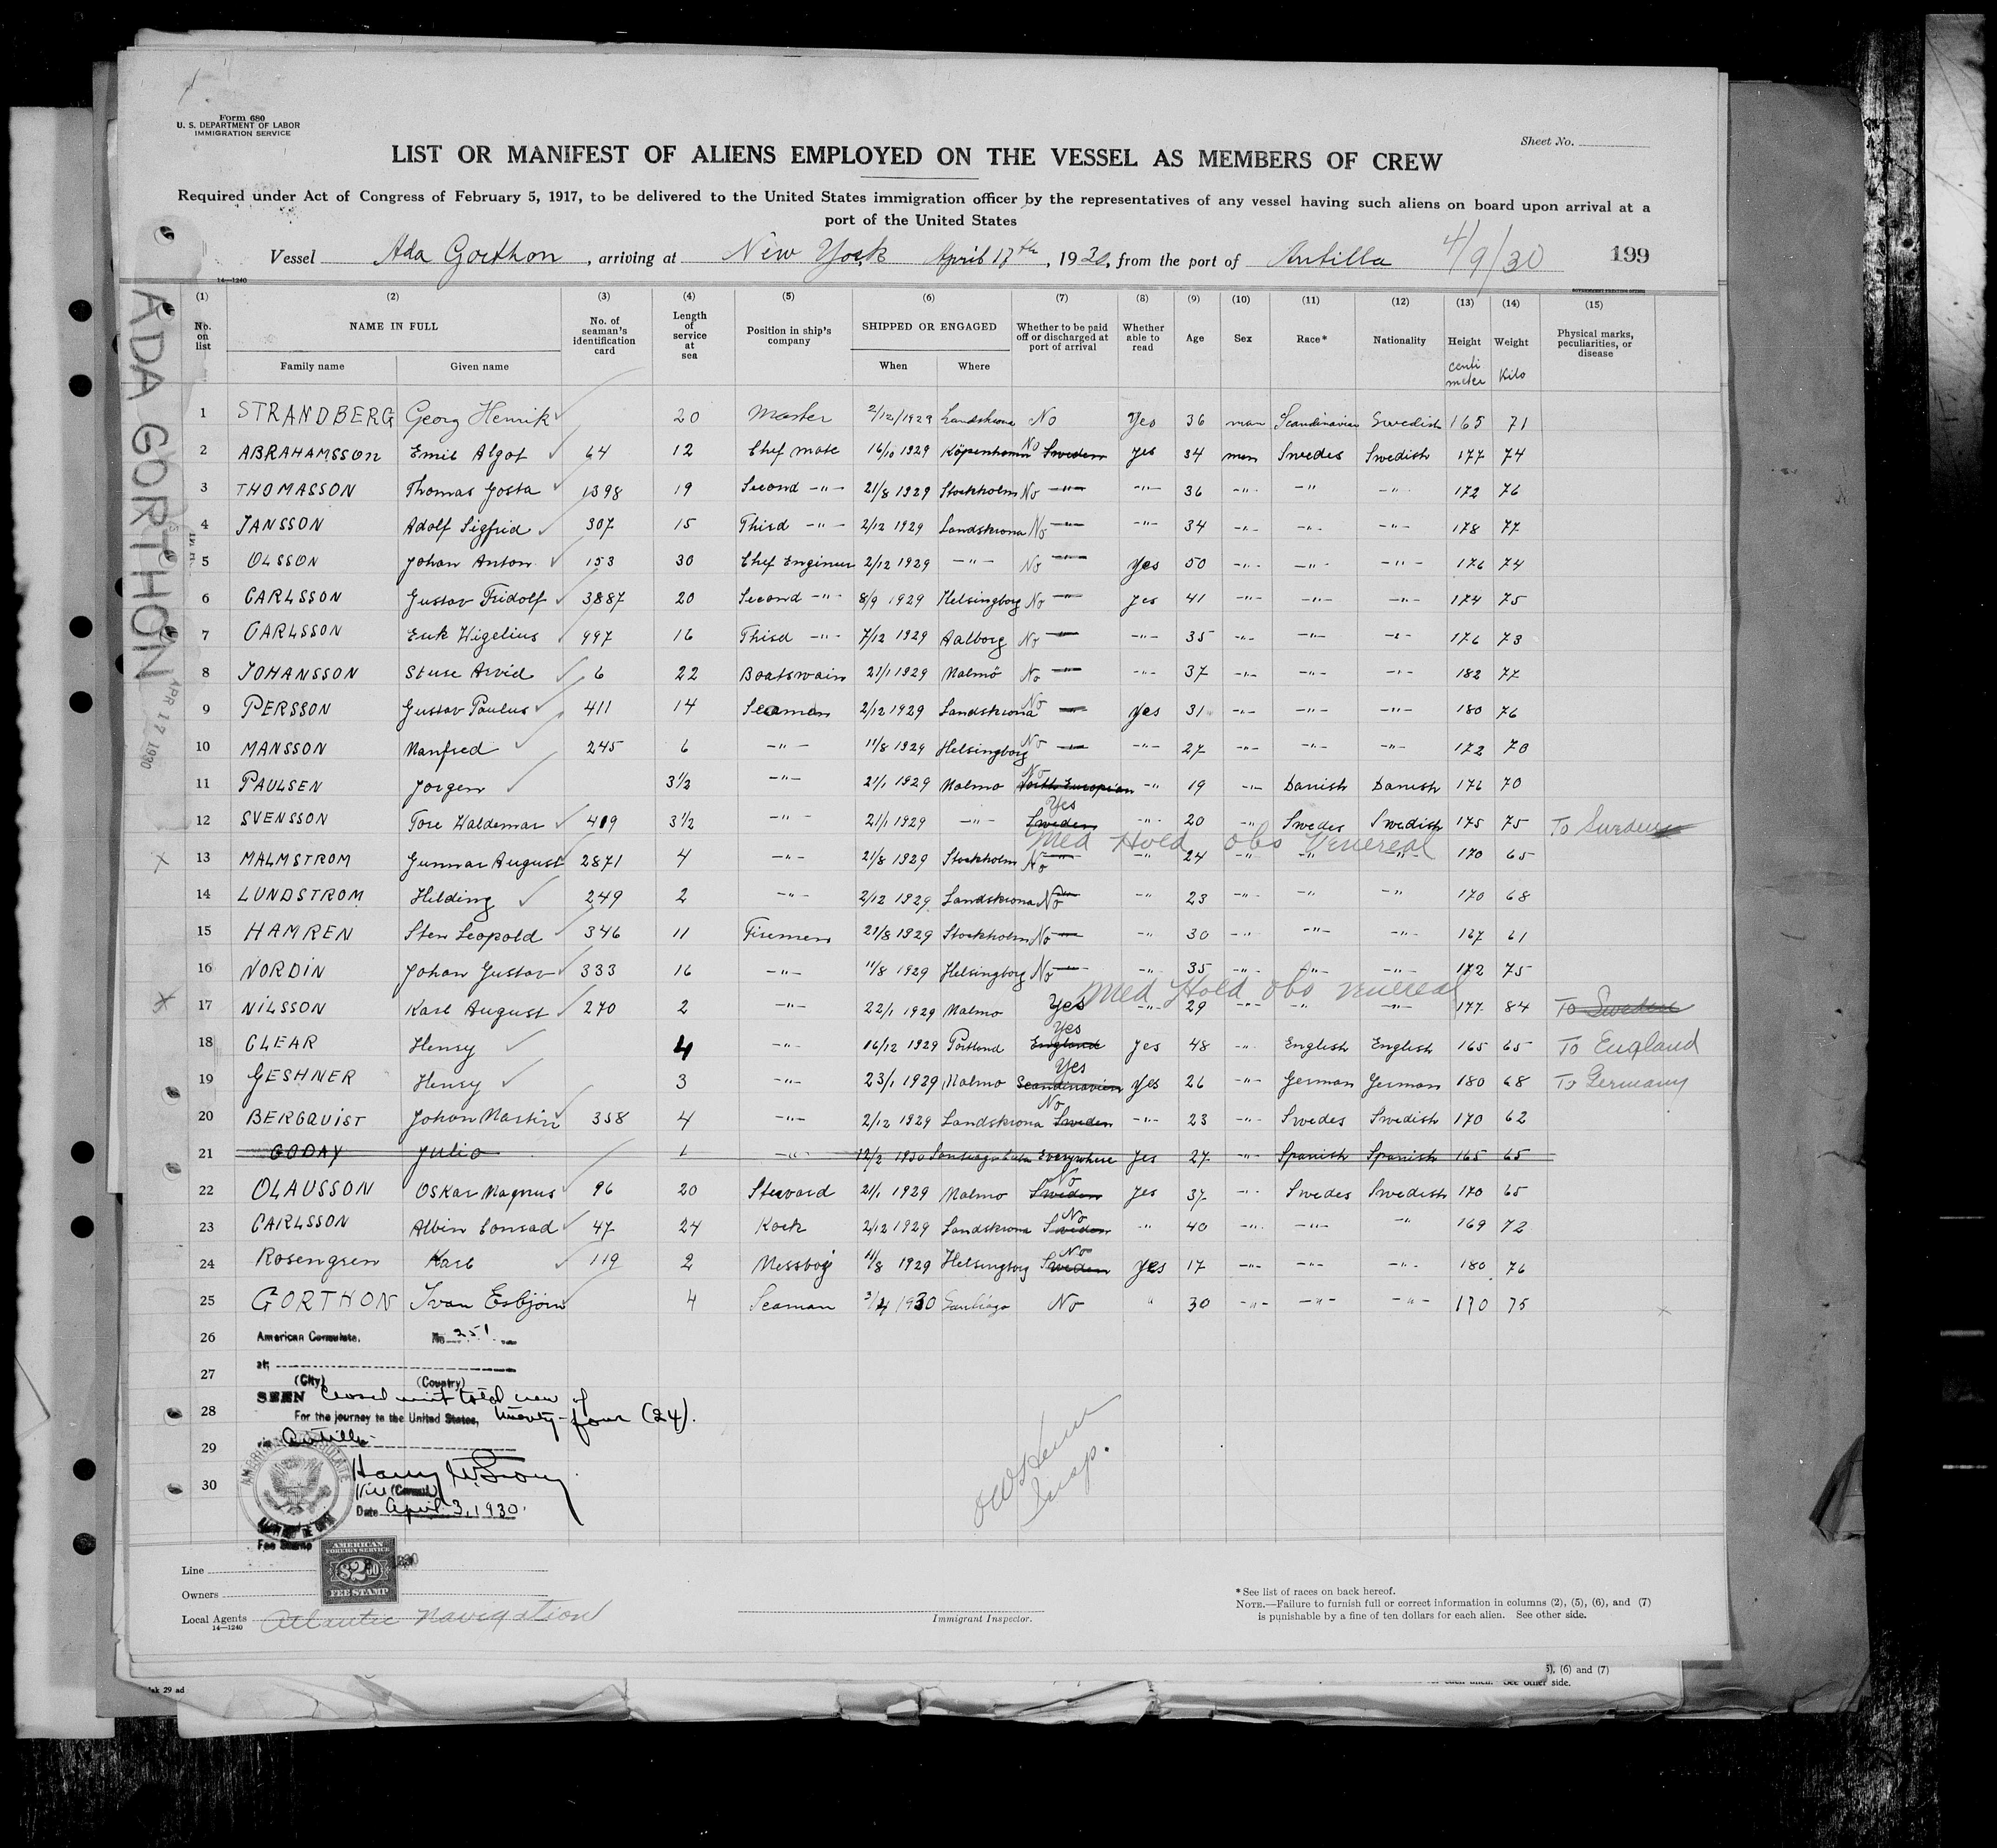 Form 680
U. S. DEPARTMENT OF LABOR
IMMIGRATION SERVICE
Sheet No.
LIST OR MANIFEST OF ALIENS EMPLOYED ON THE VESSEL AS MEMBERS OF CREW
Required under Act of Congress of February 5, 1917, to be delivered to the United States immigration officer by the representatives of any vessel having such aliens on board upon arrival at a
port of the United States
Vessel Ada Gorthon, arriving at New York April 17th, 1930, from the port of Antilla 4/9/30 199
14—1240
ADA GORTHON
APR 17 1930
(1) (2) (3) (4) (5) (6) (7) (8) (9) (10) (11) (12) (13) (14) (15)
No. on list NAME IN FULL Family name Given name No. of seaman's identification card Length of service at sea Position in ship's company SHIPPED OR ENGAGED When Where Whether to be paid off or discharged at port of arrival Whether able to read Age Sex Race* Nationality Height centi meter Weight Kilo Physical marks, peculiarities, or disease
1 STRANDBERG Georg Henrik 20 Master 2/12/1929 Landskrona No Yes 36 man Scandinavian Swedish 165 71
2 ABRAHAMSSON Emil Algot 64 12 Chef mate 16/10 1929 Köpenhamn No Sweden yes 34 men Swedes Swedish 177 74
3 THOMASSON Thomas Gosta 1398 19 Second -"- 21/8 1929 Stockholm No -"- -"- 36 -"- -"- -"- 172 76
4 JANSSON Adolf Sigfrid 307 15 Third -"- 2/12 1929 Landskrona No -"- -"- 34 -"- -"- -"- 178 77
5 OLSSON Johan Anton 153 30 Chef Engineer 2/12 1929 -"- No -"- Yes 50 -"- -"- -"- 176 74
6 CARLSSON Gustav Fridolf 3887 20 Second -"- 8/9 1929 Helsingborg No -"- yes 41 -"- -"- -"- 174 75
7 CARLSSON Erik Wigelius 997 16 Third -"- 7/12 1929 Aalborg No -"- -"- 35 -"- -"- -"- 176 73
8 JOHANSSON Sture Arvid 6 22 Boatswain 21/1 1929 Malmö No -"- -"- 37 -"- -"- -"- 182 77
9 PERSSON Gustav Paulus 411 14 Seaman 2/12 1929 Landskrona No -"- yes 31 -"- -"- -"- 180 76
10 MANSSON Manfred 245 6 -"- 11/8 1929 Helsingborg No -"- -"- 27 -"- -"- -"- 172 70
11 PAULSEN Jorgen 3½ -"- 21/1 1929 Malmo No North European -"- 19 -"- Danish Danish 176 70
12 SVENSSON Tore Waldemar 419 3½ -"- 21/1 1929 -"- Yes Sweden -"- 20 -"- Swedes Swedish 175 75 To Sweden
Med Hold obs Venereal
13 MALMSTROM Gunnar August 2871 4 -"- 21/8 1929 Stockholm No -"- -"- 24 -"- -"- -"- 170 65
14 LUNDSTROM Hilding 249 2 -"- 2/12 1929 Landskrona No -"- 23 -"- -"- -"- 170 68
15 HAMREN Sten Leopold 346 11 Firemen 21/8 1929 Stockholm No -"- -"- 30 -"- -"- -"- 167 61
16 NORDIN Johan Gustav 333 16 -"- 11/8 1929 Helsingborg No -"- -"- 35 -"- -"- -"- 172 75
Med Hold obs venereal
17 NILSSON Karl August 270 2 -"- 22/1 1929 Malmo Yes -"- 29 -"- -"- -"- 177 84 To Sweden
18 CLEAR Henry 4 -"- 16/12 1929 Portlend Yes England yes 48 -"- English English 165 65 To England
19 GESHNER Henry 3 -"- 23/1 1929 Malmo Yes Scandinavien yes 26 -"- German German 180 68 To Germany
20 BERGQUIST Johan Martin 358 4 -"- 2/12 1929 Landskrona No Sweden -"- 23 -"- Swedes Swedish 170 62
21 GODAY Julio 1 -"- 12/2 1930 Santiago Cuba Everywhere yes 27 -"- Spanish Spanish 165 65
22 OLAUSSON Oskar Magnus 96 20 Stevard 21/1 1929 Malmo No Sweden yes 37 -"- Swedes Swedish 170 65
23 CARLSSON Albin Conrad 47 24 Kock 2/12 1929 Landskrona No Sweden " 40 -"- -"- -"- 169 72
24 Rosengren Karl 119 2 Messboy 11/8 1929 Helsingborg No Sweden yes 17 -"- -"- -"- 180 76
25 GORTHON Ivan Esbjörn 4 Seaman 2/4 1930 Santiago No " 30 -"- -"- -"- 170 75
26 American Consulate. No 251
27 at
(City) (Country)
SEEN Closed unit total crew of
28 For the journey to the United States, twenty-four (24).
29 via Antilla
30
Vice (Consul)
Date April 3, 1930.
Fee Stamp
AMERICAN FOREIGN SERVICE
$2.50
FEE STAMP
Insp.
Line
Owners
Local Agents Atlantic Navigation
14—1240
Immigrant Inspector.
*See list of races on back hereof.
NOTE.—Failure to furnish full or correct information in columns (2), (5), (6), and (7)
is punishable by a fine of ten dollars for each alien. See other side.
(6) and (7)
See other side.